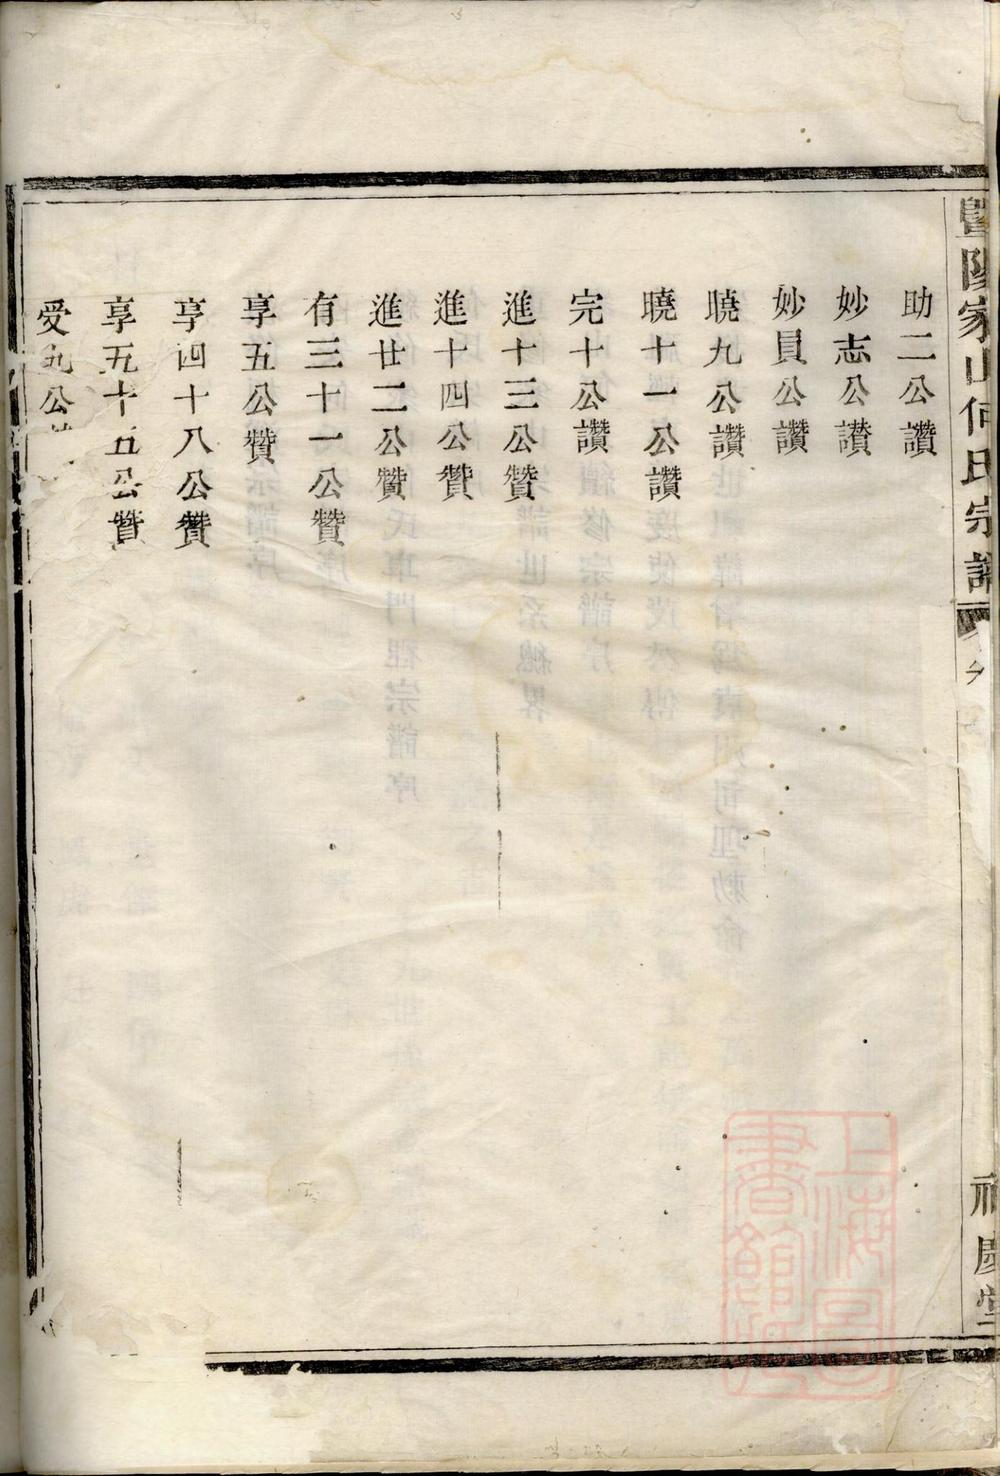 暨陽家山何氏宗譜
助二公讚
妙志公讃
妙員公讃
曉九公讚
曉十一公讚
完十公讚
進十三公贊
進十四公贊
進廿二公贊
有三十一公贊
享五公贊
享四十八公贊
享五十五公贊
受九公
上海圖書館藏